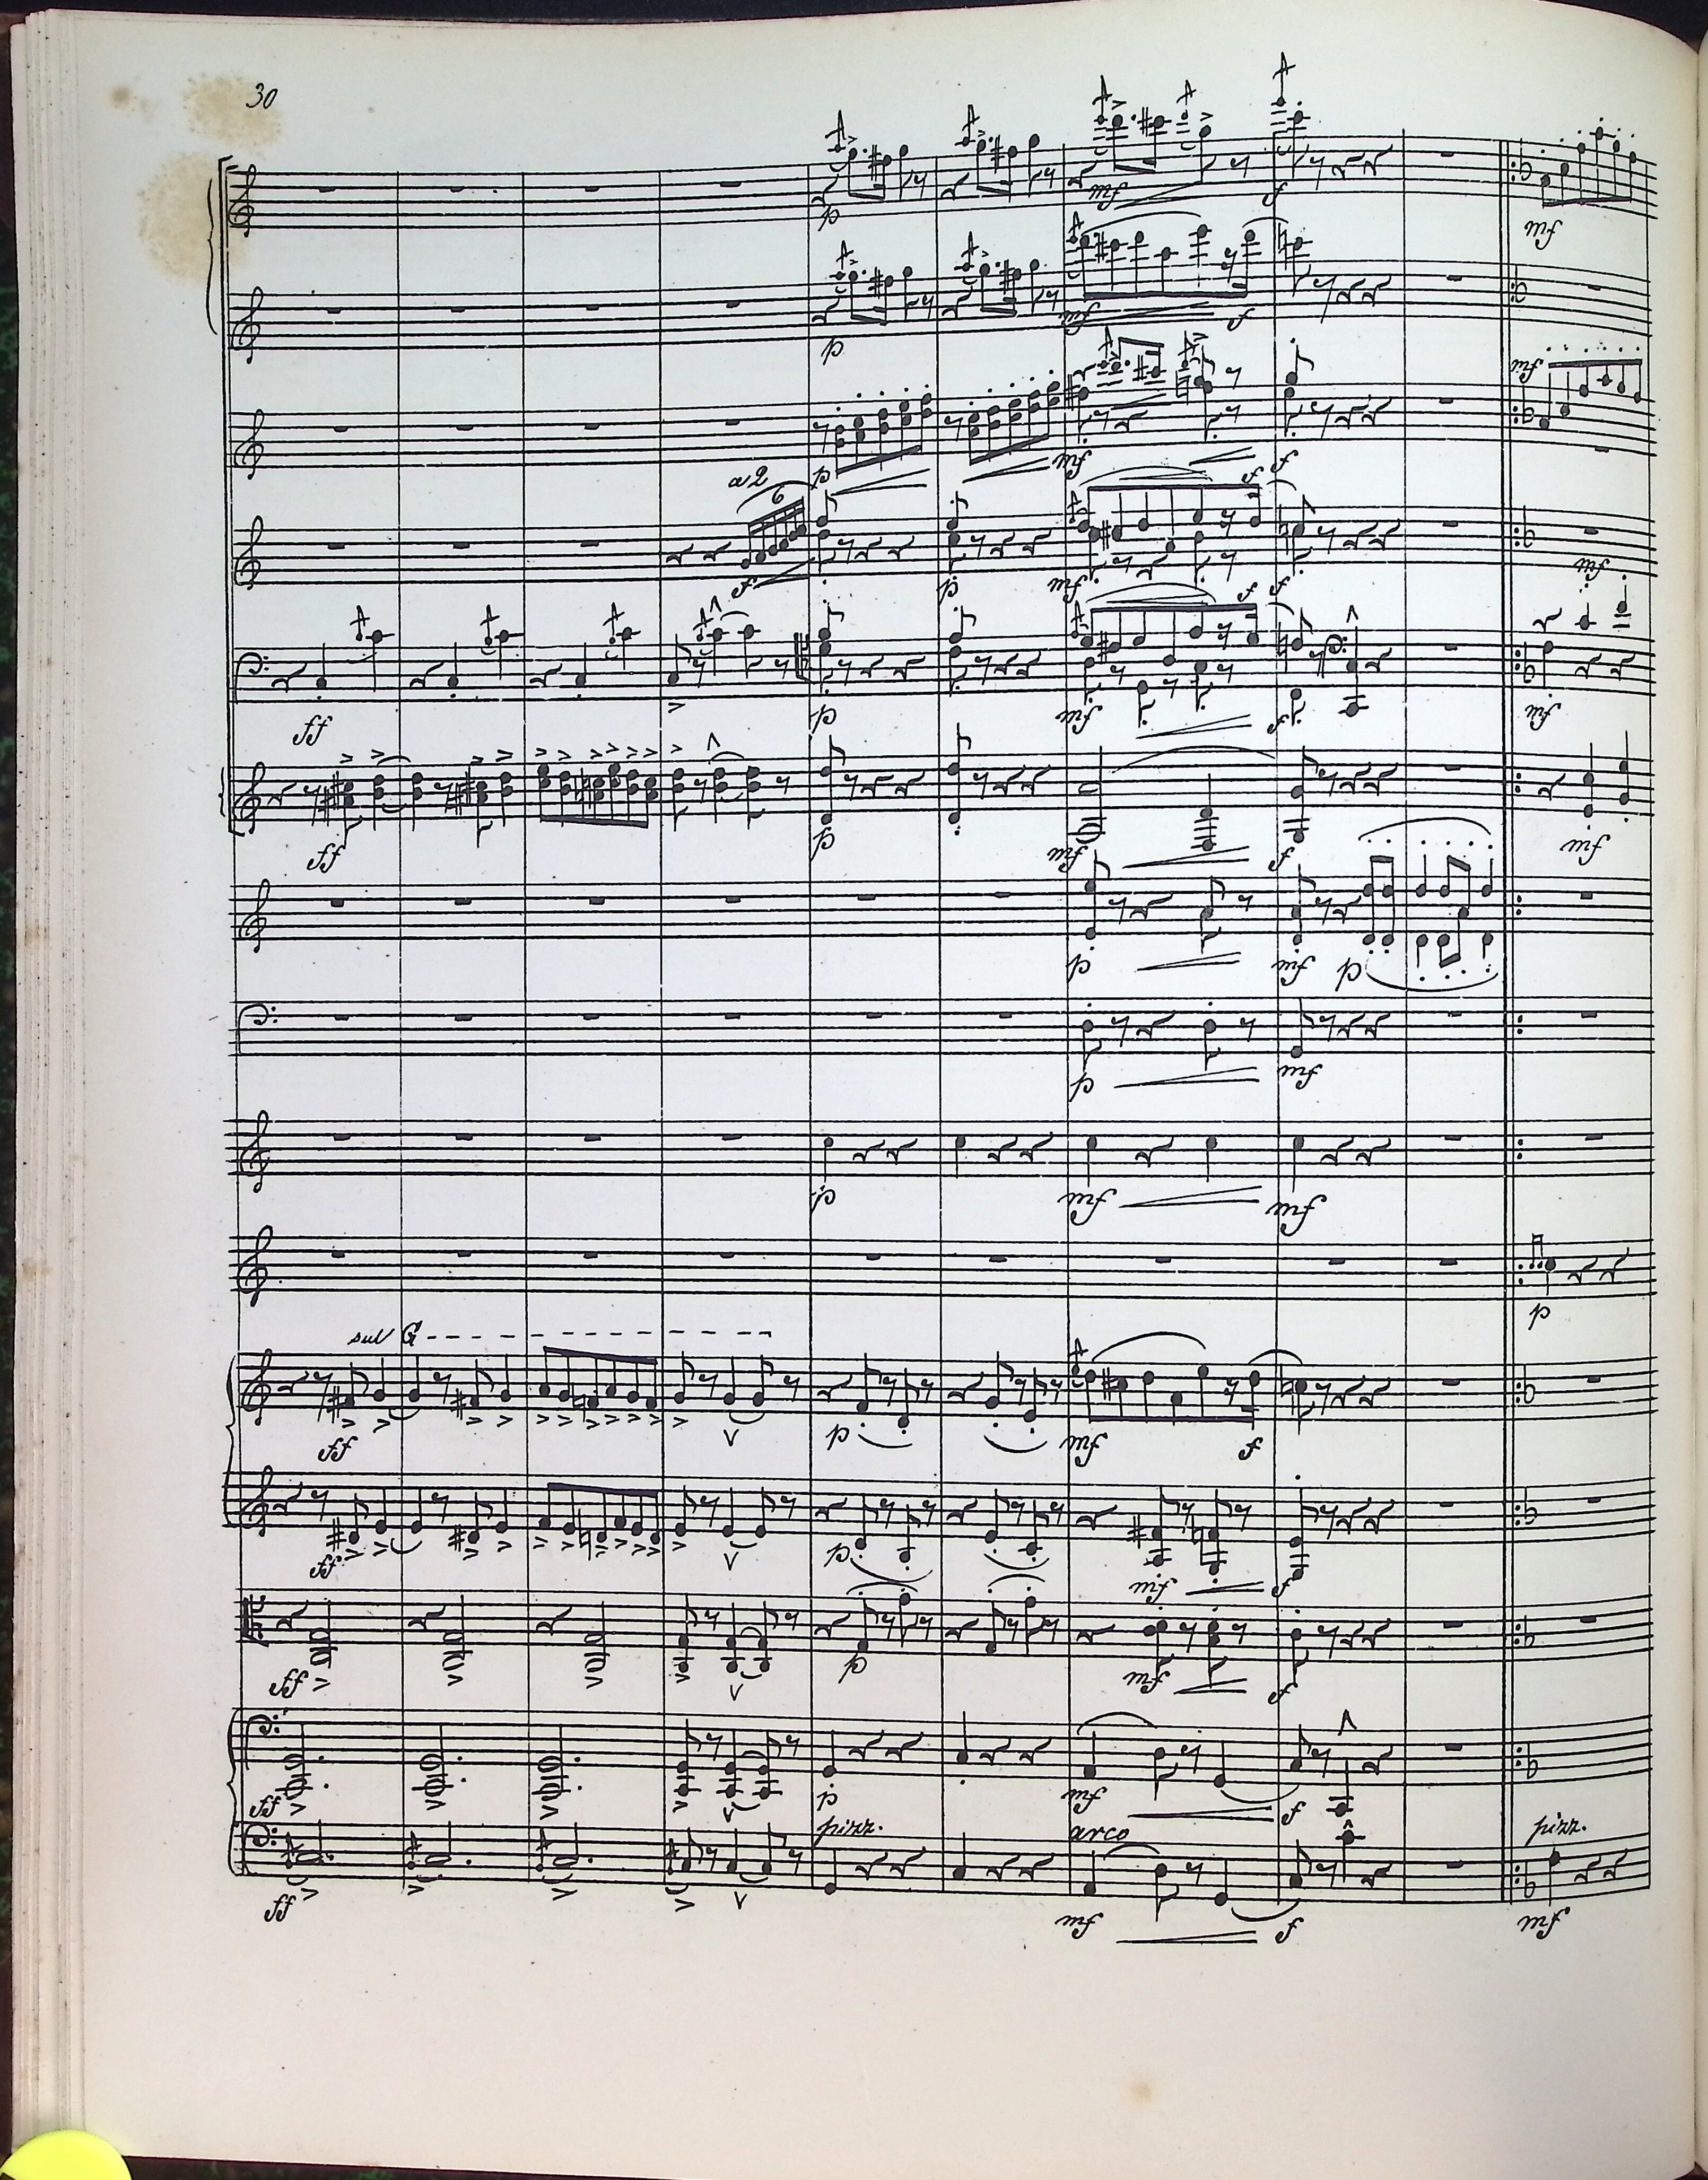 30
p
mf
f
mf
p
mf
f
mf
a 2
6
p
mf
f
f
f
p
mf
f
f
mf
ff
p
mf
f
mf
ff
p
mf
f
mf
p
mf
p
p
mf
p
mf
mf
p
sul G
ff
p
mf
f
ff
p
mf
f
ff
p
mf
f
ff
p
mf
f
pizz.
arco
pizz.
ff
mf
f
mf